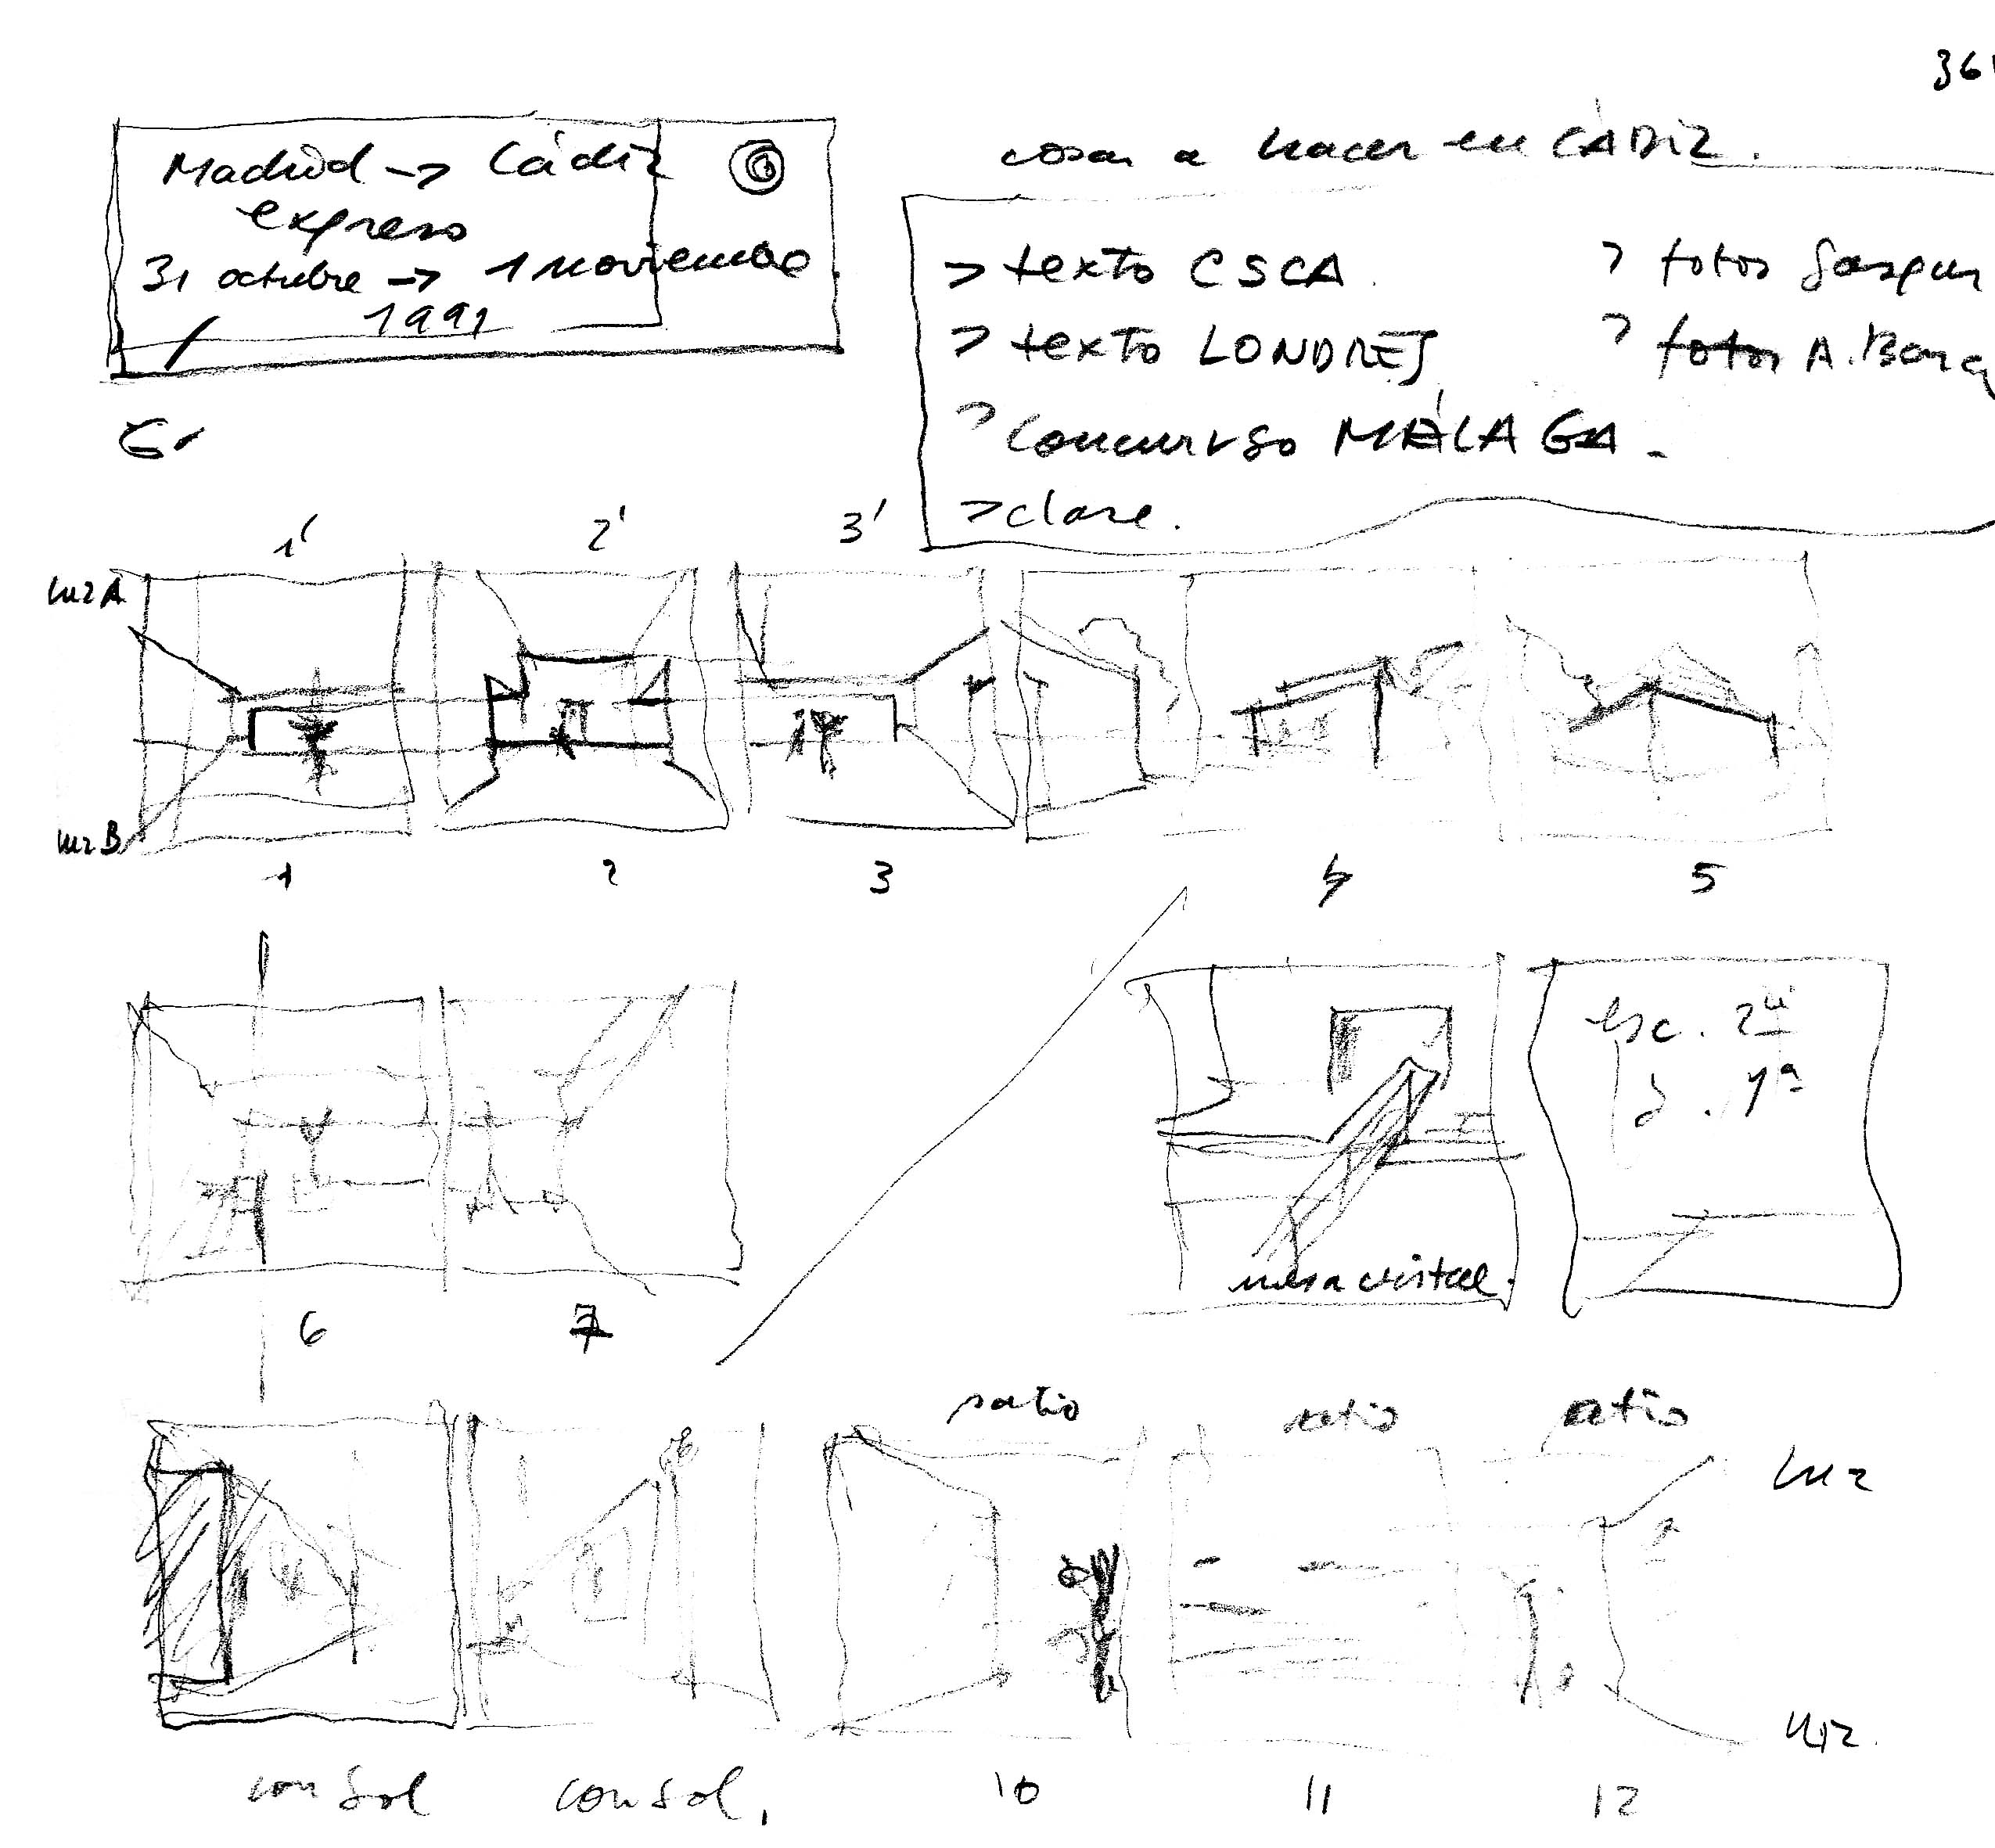 361
Madrid -> Cádiz
expreso
31 octubre -> 1 noviembre.
1991
cosas a hacer en CÁDIZ.
> texto CSCA.
> fotos Gaspar
> texto LONDRES
> fotos A. Barq
> Concurso MÁLAGA.
> clase.
1' 2' 3'
luz A
luz B
1 2 3 4 5
esc. 2ª
d. 1ª
mesa cristal.
6 7
patio patio patio
luz
luz.
con sol con sol. 10 11 12